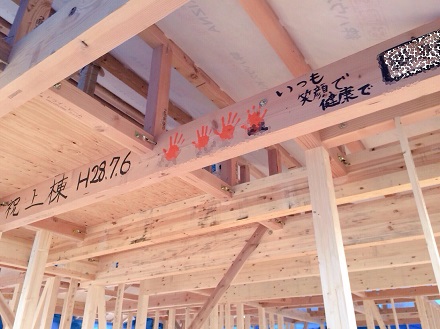 祝上棟 H28.7.6
いつも
笑顔で
健康で